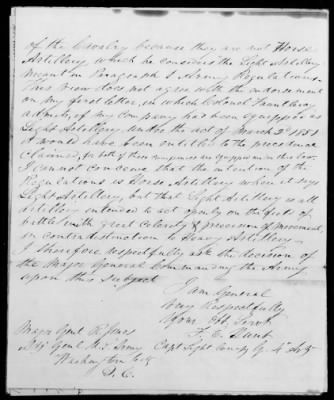 of the Cavalry because they are not Horse
Artillery, which he considers the Light Artillery
meant in Paragraph 1 Army Regulations.
This view does not agree with the endorsement
on my first letter, in which Colonel
admits, if my Company had been equipped as
Light Artillery under the act of March 2d
it would have been entitled to the precedence
claimed,
I cannot conceive that the intention of the
Regulations is Horse Artillery when it says
Light Artillery, but that Light Artillery is all
Artillery intended to act openly on the field of
battle with great celerity & precision of movement,
in contradistinction to Heavy Artillery.
I therefore respectfully ask the decision of
the Major General Commanding the Army
upon this subject
I am General
Very Respectfully
Your Obt. Servt.
F. E. Hunt
Major Genl R. Jones
Adjt Genl U.S. Army Capt Light Compy G. 4th Arty
Washington City
D. C.